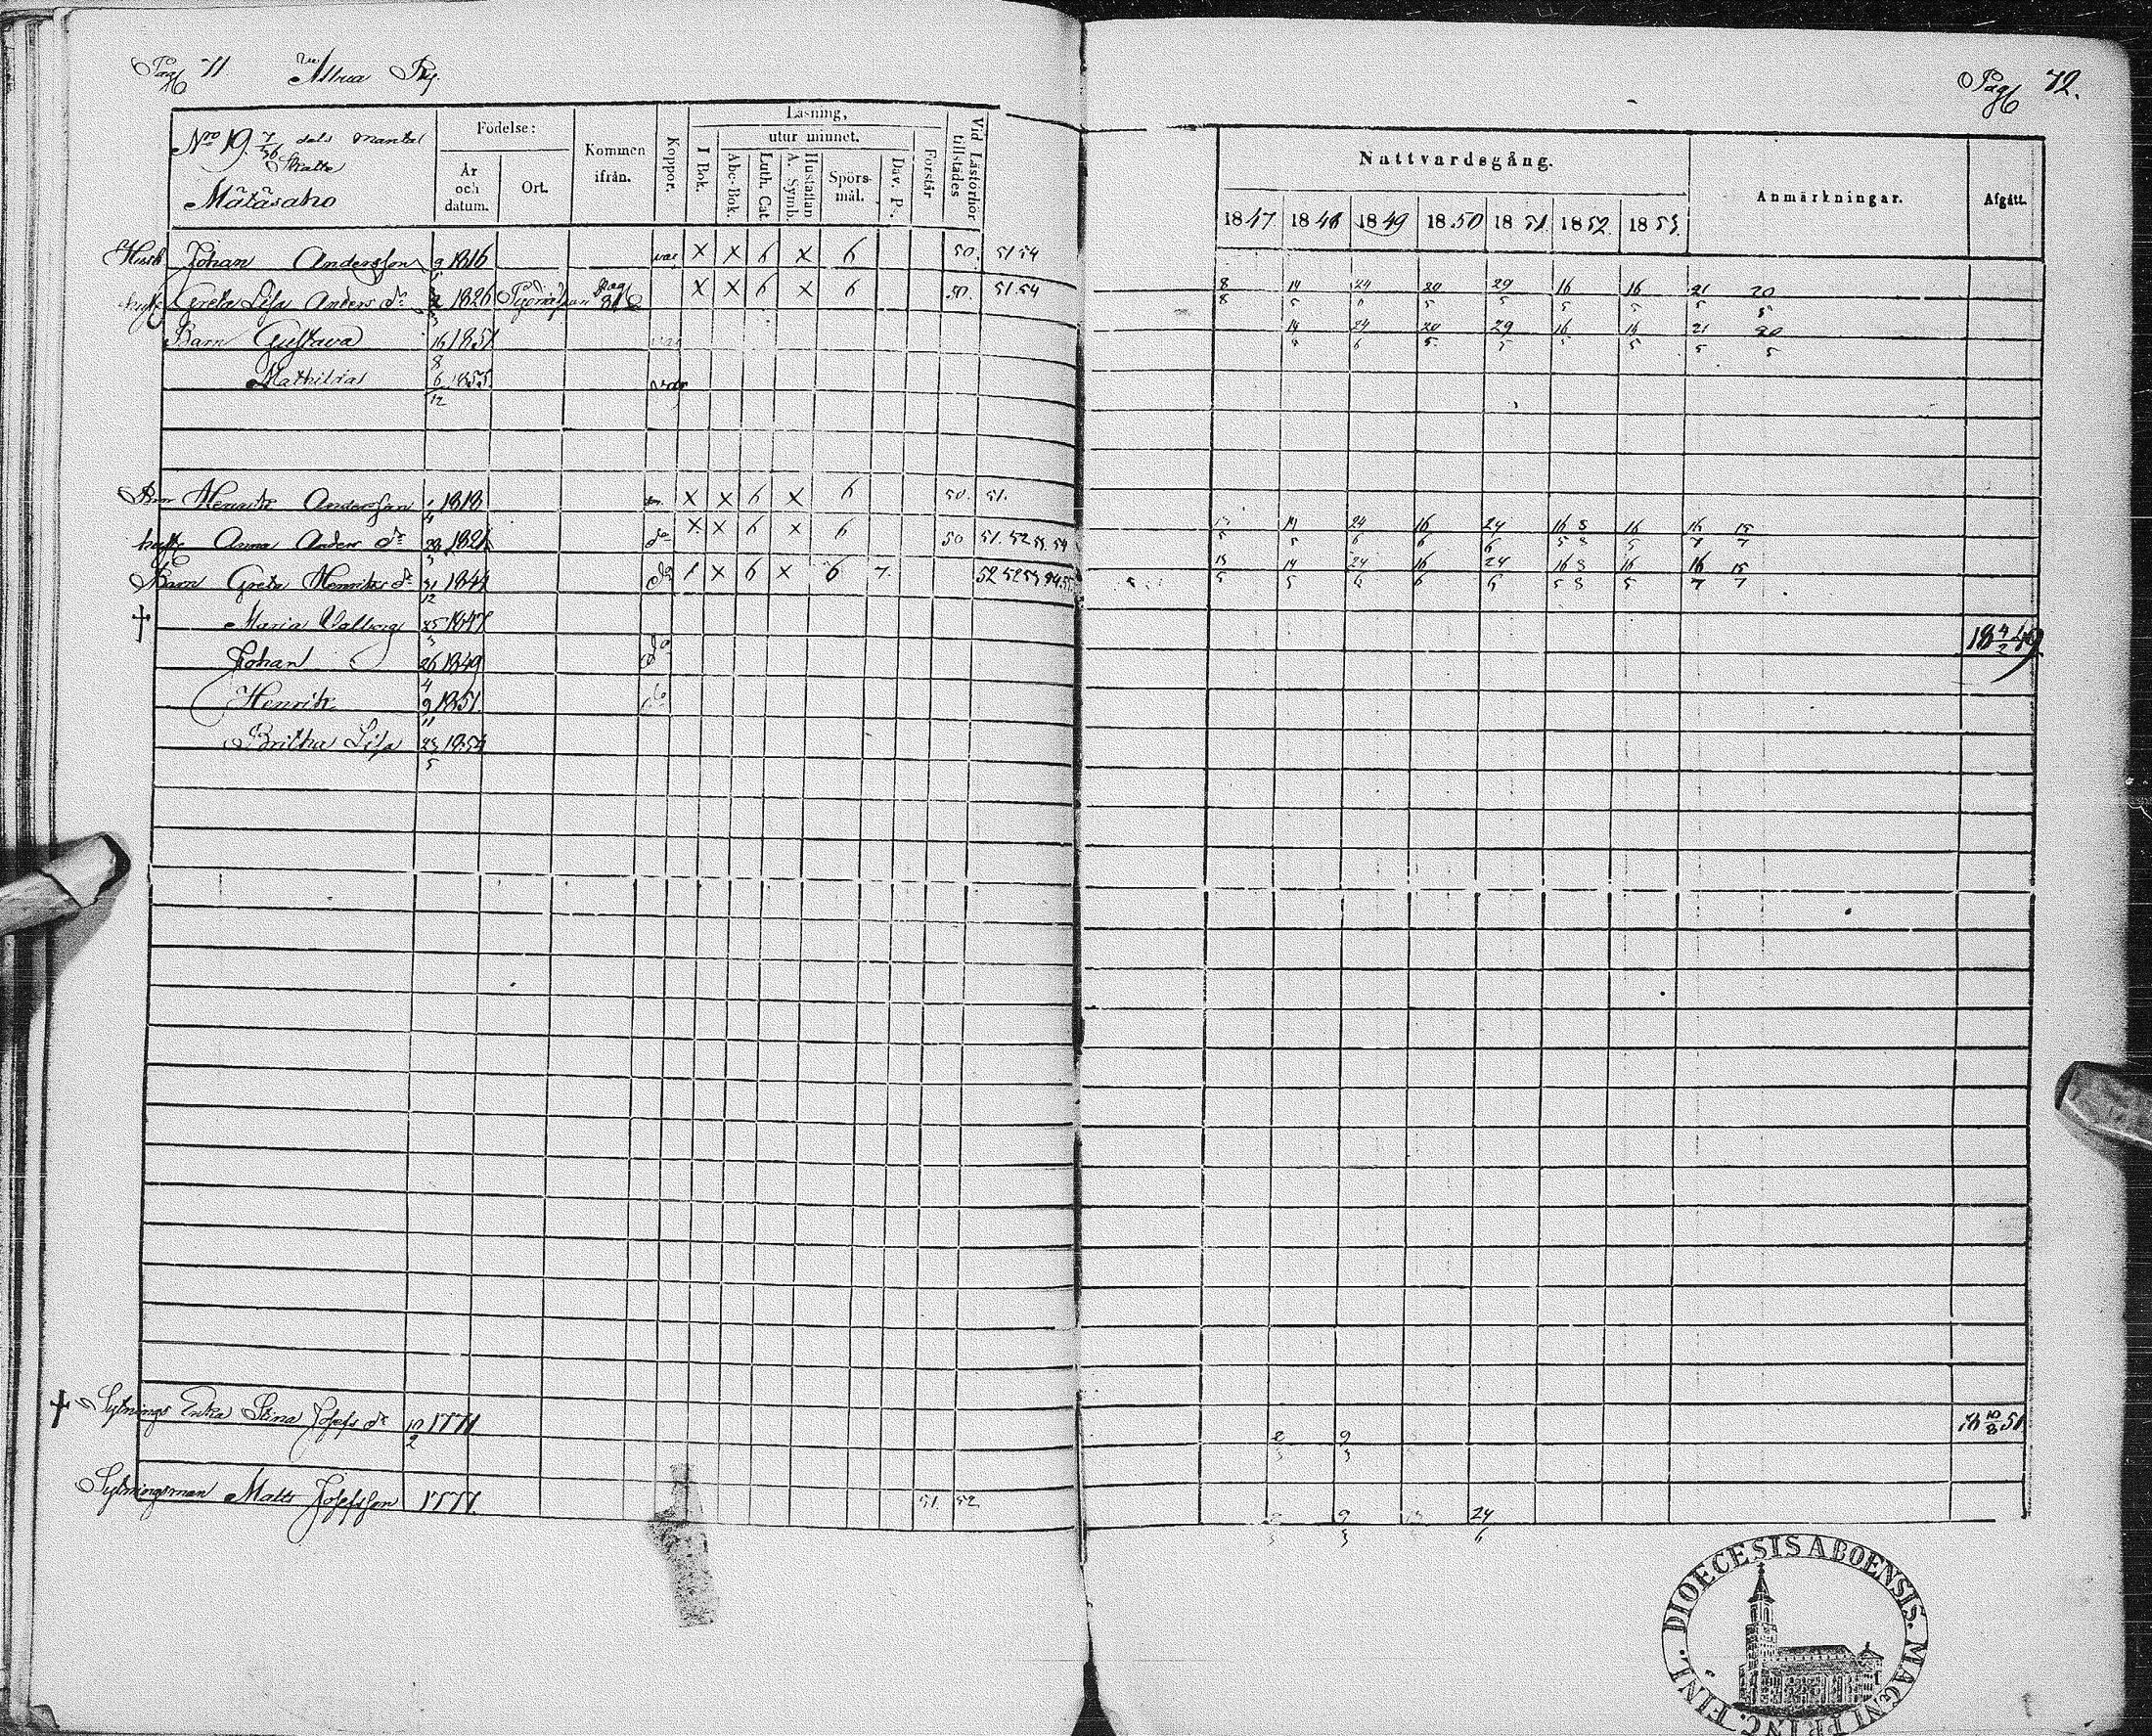 Pag 71 By.
Pag 72.
No 19. 7/36 dels mantal
Skatte
Mätäsaho
Födelse:
År och datum.
Ort.
Kommen ifrån.
Koppor.
Läsning,
utur minnet.
I Bok.
Abc-Bok.
Luth. Cat.
Hustaflan A. Symb.
Spörsmål.
Dav. Ps.
Förstår
Vid Läsförhör tillstädes
Nattvardsgång.
1847 1848 1849 1850 1851 1852 1853
Anmärkningar.
Afgått.
Johan Andersson 1816 vac x x 6 x 6 50. 51 54
Greta Lisa Anders dr 1826 Pag x x 6 x 6 50. 51.54
8/8 14/5 24/6 20/5 29/5 16/5 16/5 21/5 20/5
Barn Gustava 16/8 1851
14 24/6 20/5 29/5 16/5 16/5 21/5 20/5
Mathilda 6/12 1855
Henrik Andersson 1/4 1818 x x 6 x 6 50. 51.
hust Anna Anders dr 1821 do x x 6 x 6 50 51.52 53. 54
14/5 24/6 16/6 24/6 16/5 8/8 16/5 16/7 15/7
Barn Greta Henriks dr 31/12 1844 do x 6 x 6 7.
14/5 24/6 16/6 24/6 16/5 8/8 16/5 16/7 15/7
† Maria Valborg 25/3 1847 18 4/2 49
Johan 26/4 1849 do
Henrik 9/11 1851. do
Britha Lisa 23/5 1854
† Sytnings Enka Stina Josefs dr 10/2 1771 2/3 9/3 18 10/8 51
Sytningsman Matts Josefsson 1777. 51. 52 9/3 24/6
DIOECESIS ABOENSIS. MAGNI PRINC. FINL.